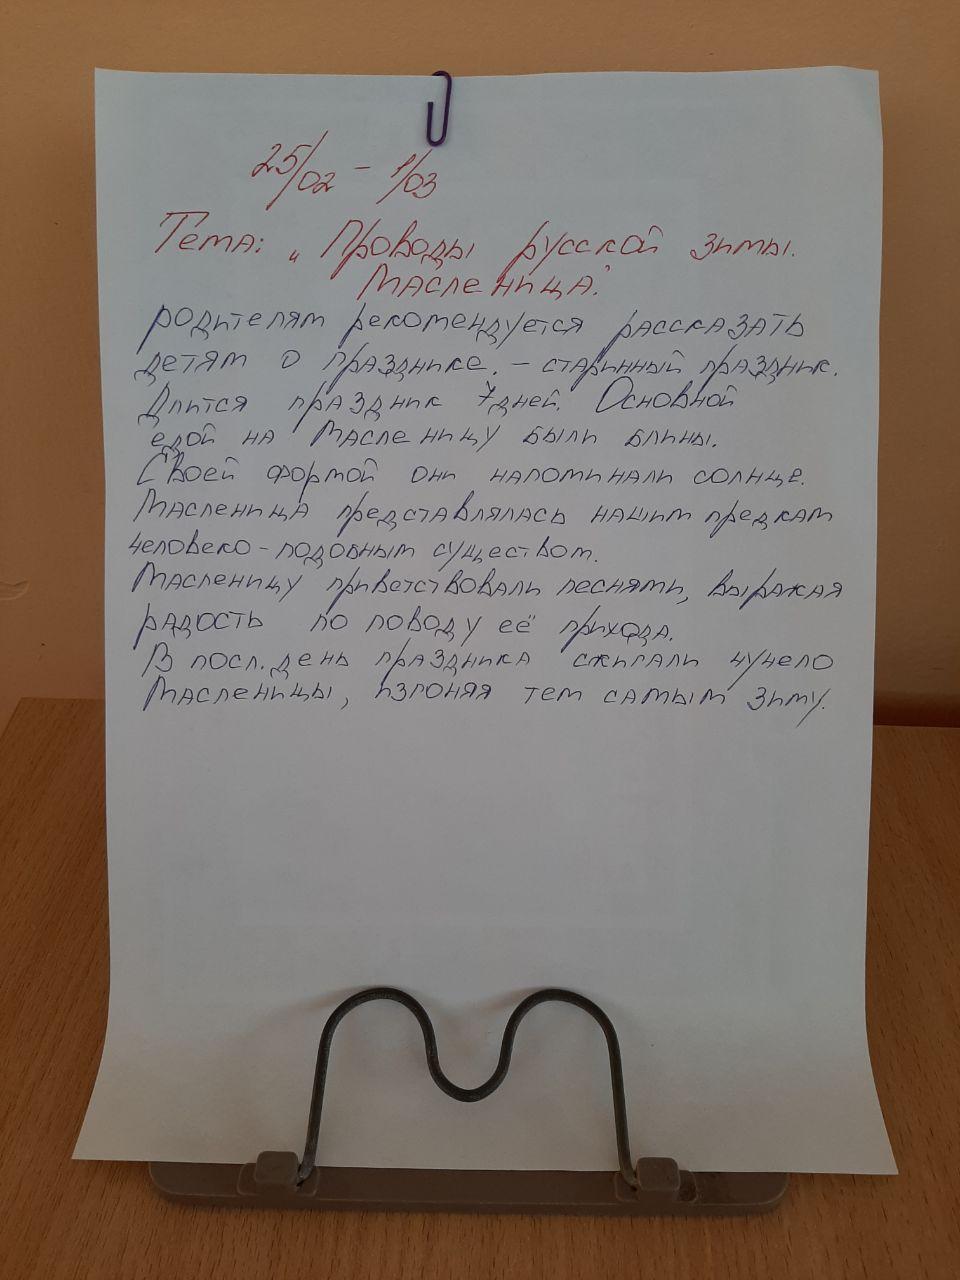 25/02 - 1/03
Тема: „Проводы русской зимы.
Масленица."
родителям рекомендуется рассказать
детям о празднике. - старинный праздник.
Длится праздник 7 дней. Основной
едой на Масленицу были блины.
Своей формой они напоминали солнце.
Масленица представлялась нашим предкам
человеко-подобным существом.
Масленицу приветствовали песнями, выражая
радость по поводу её прихода.
В посл. день праздника сжигали чучело
Масленицы, изгоняя тем самым зиму.